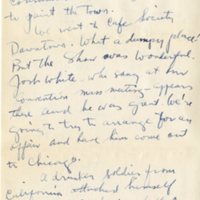 to paint the town.
We went to Cafe Society
Downtown. What a dumpy place!
But the Show was Wonderful.
Josh White, who sang at our
Convention mass meeting – appears
there and he was great. We're
going to try to arrange for an
affair and have him come out
to Chicago.
A drunken soldier from
California attached himself